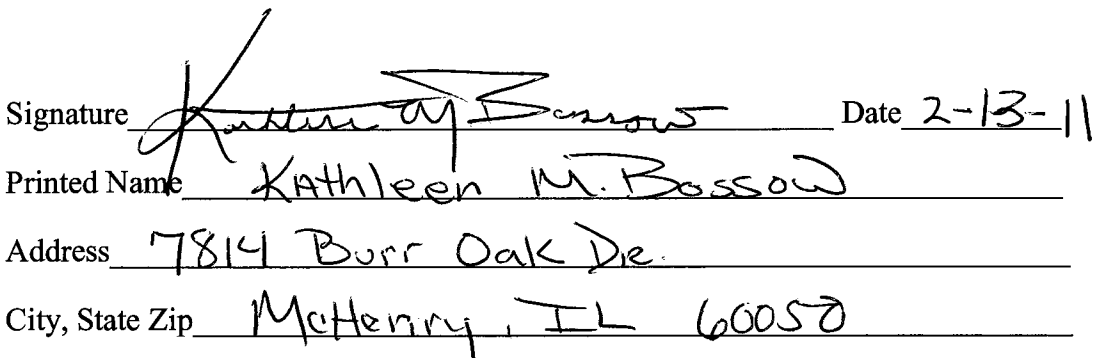 Signature Kathleen M Bossow Date 2-13-11
Printed Name KAthleen M. Bossow
Address 7814 Burr Oak DR.
City, State Zip McHenry, IL 60050